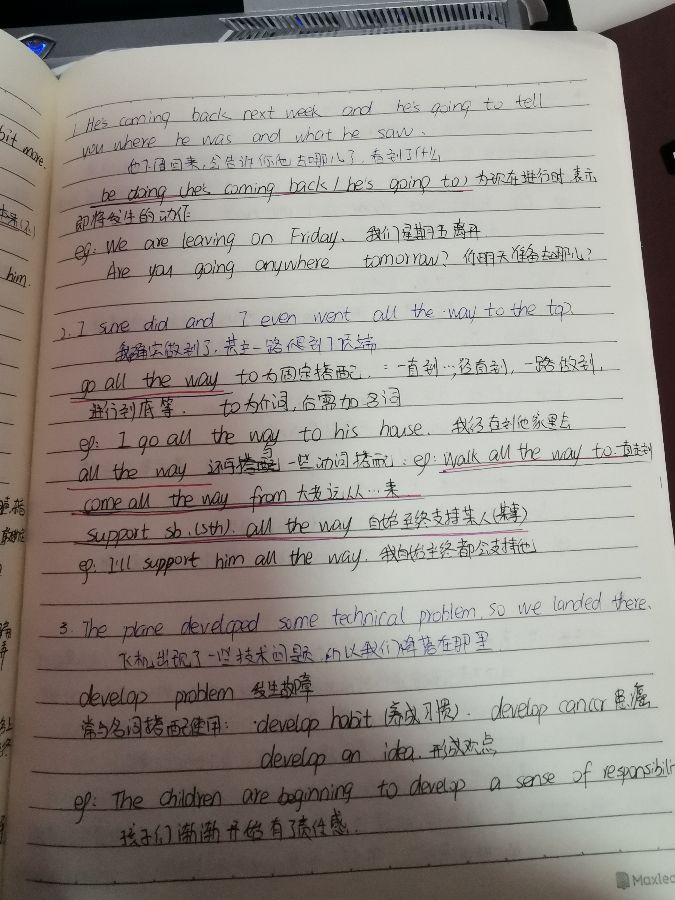 bit more.
him.
1. He's coming back next week and he's going to tell
you where he was and what he saw.
他下周回来,会告诉你他去哪儿了,看到了什么
be doing (he's coming back / he's going to) 为现在进行时,表示
即将发生的动作
eg: We are leaving on Friday. 我们星期五离开
Are you going anywhere tomorrow? 你明天准备去哪儿?
2. I sure did and I even went all the way to the top.
我确实做到了,甚至一路爬到了顶端
go all the way to 为固定搭配,:一直到…,径直到,一路做到,
进行到底等. to为介词,后需加名词
eg: I go all the way to his house. 我径直到他家里去
all the way 还可与一些动词搭配:eg: walk all the way to 一直走到
come all the way from 大老远从…来
support sb.(sth). all the way 自始至终支持某人(某事)
eg: I'll support him all the way. 我自始至终都会支持他
3. The plane developed some technical problem, so we landed there.
飞机出现了一些技术问题,所以我们降落在那里
develop problem 发生故障
常与名词搭配使用: develop habit (养成习惯). develop cancer 患癌
develop an idea. 形成观点
eg: The children are beginning to develop a sense of responsibili
孩子们渐渐开始有了责任感.
Maxlea